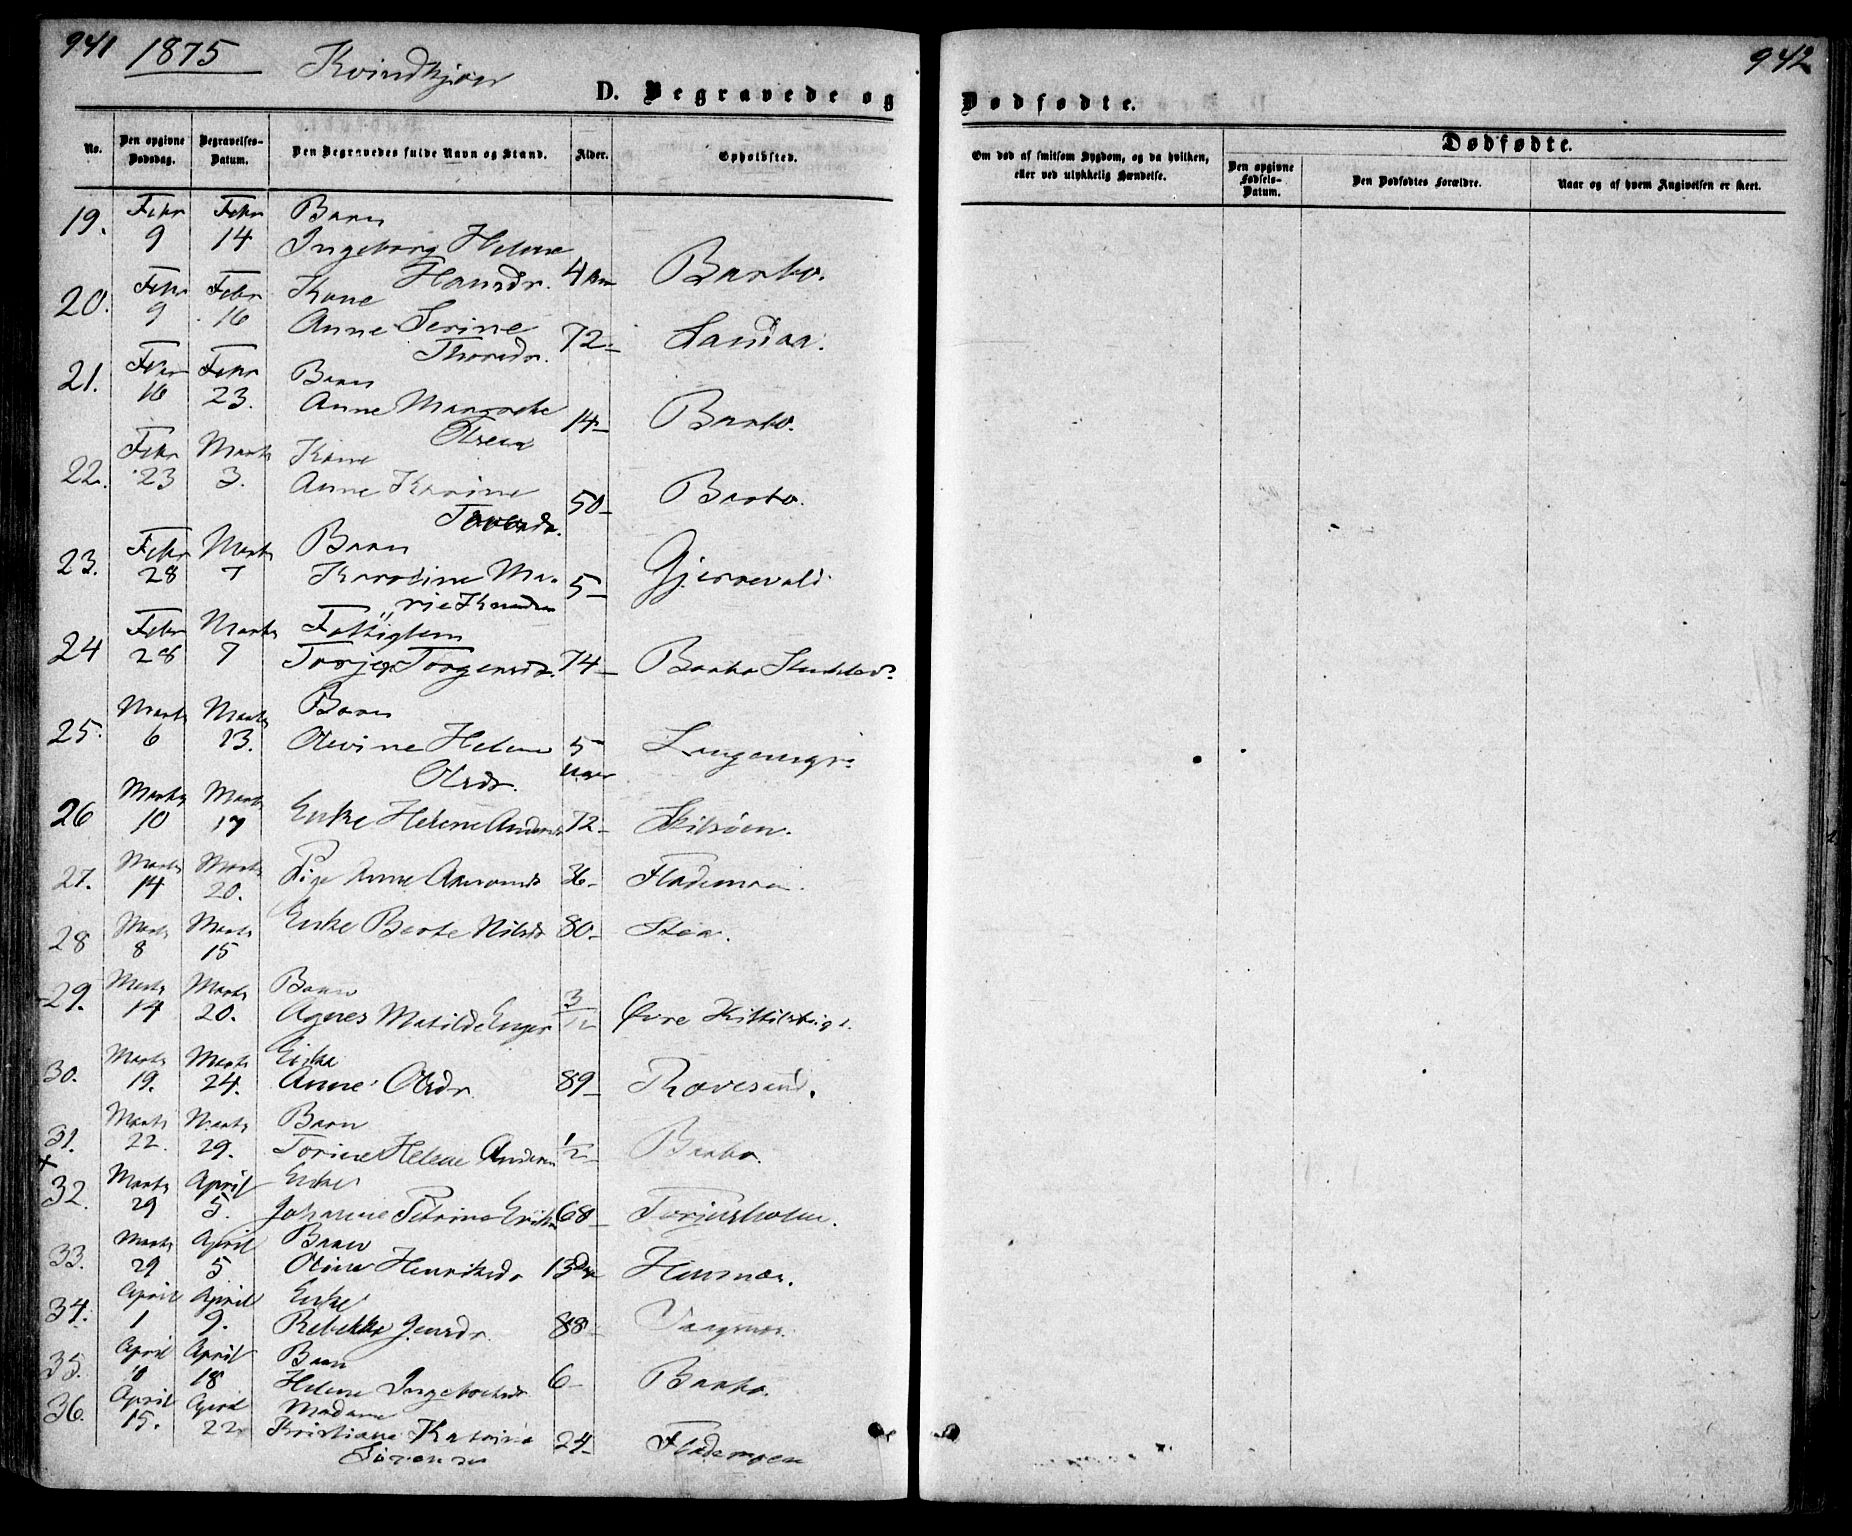 941 1875 Kvindkjøn
942
D. Begravede og Dødfødte.
No. Den opgivne Dødsdag. Begravelses-Datum. Den Begravedes fulde Navn og Stand. Alder. Opholdsted.
Om død af smitsom Sygdom, og da hvilken, eller ved ulykkelig Hændelse.
Dødfødte.
Den opgivne Fødsels-Datum. Den Dødfødtes Forældre. Naar og af hvem Angivelsen er skeet.
19. Febr 9 Febr 14 Barn
Ingeborg Helene
Hansdr. 4 Barbo.
20. Febr 9 Febr 16 Kone
Anne Serine
Thorsdr. 72 Sandaa.
21. Febr 16 Febr 23. Barn
Anne Margrete
Olsen 14 Barbo.
22. Febr 23 Marts 3. Kone
Anne Karine
50 Barbo.
23. Febr 28 Marts 7 Barn
Karoline Ma-
rie Knudsen 5 Gjerrevald
24 Febr 28 Marts 7 Fattiglem
Torjer Torgersdr. 74 Barbo
25. Marts 6 Marts 13. Barn
Olevine Helene
Olsdr. 5 Uger
26 Marts 10 Marts 17 Enke Helene Andersdr 72 Skilsøen.
27. Marts 14 Marts 20. Pige Anne Aanonsdr 36 Flademoen.
28 Marts 8 Marts 15 Enke Berte Nilsdr 80 Stoa.
29. Marts 14 Marts 20. Barn
Agnes Matilde Enger 3/12 Øvre
30. Marts 19. Marts 24. Enke
Anne Olsdr. 89 Rævesand.
31. Marts 22. Marts 29. Barn
Torine Helene Andersen 1/2 Barbo.
+
32. Marts 29 April 5. Enke
Johanne Petrine 68 Torjusholm.
33. Marts 29 April 5 Barn
Oline Henriksdr 13 Dage Hausnæs.
34. April 1 April 9. Enke
Rebekka Jensdr. 88 Vaagsnæs.
35. April April 18 Barn
Helene 6 Barbo.
36. April 15. April 22 Madame
Kristiane Katrine
Sørensen 24 Flademoen